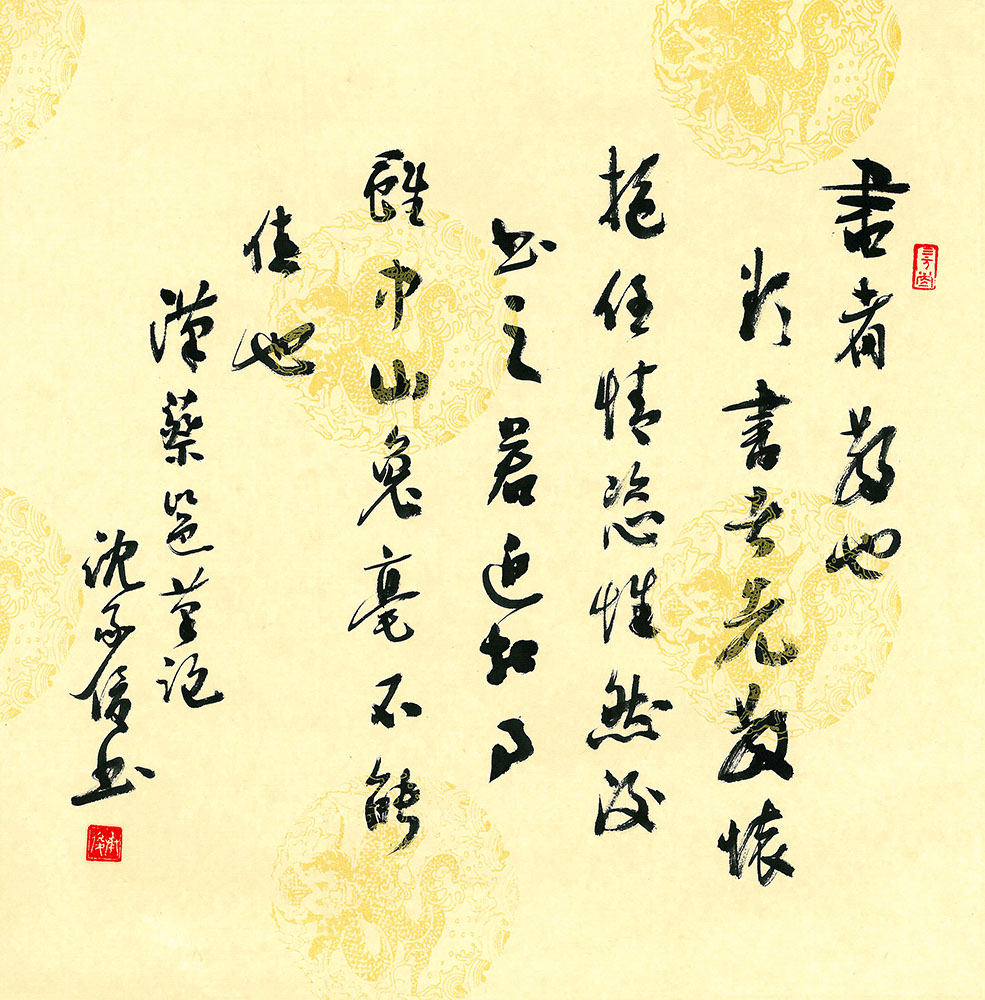 書者散也
欲書者先散懷
抱任情恣性然後
书之若迫於事
雖中山兔毫不能
佳也
漢蔡邕筆論
沈俊书